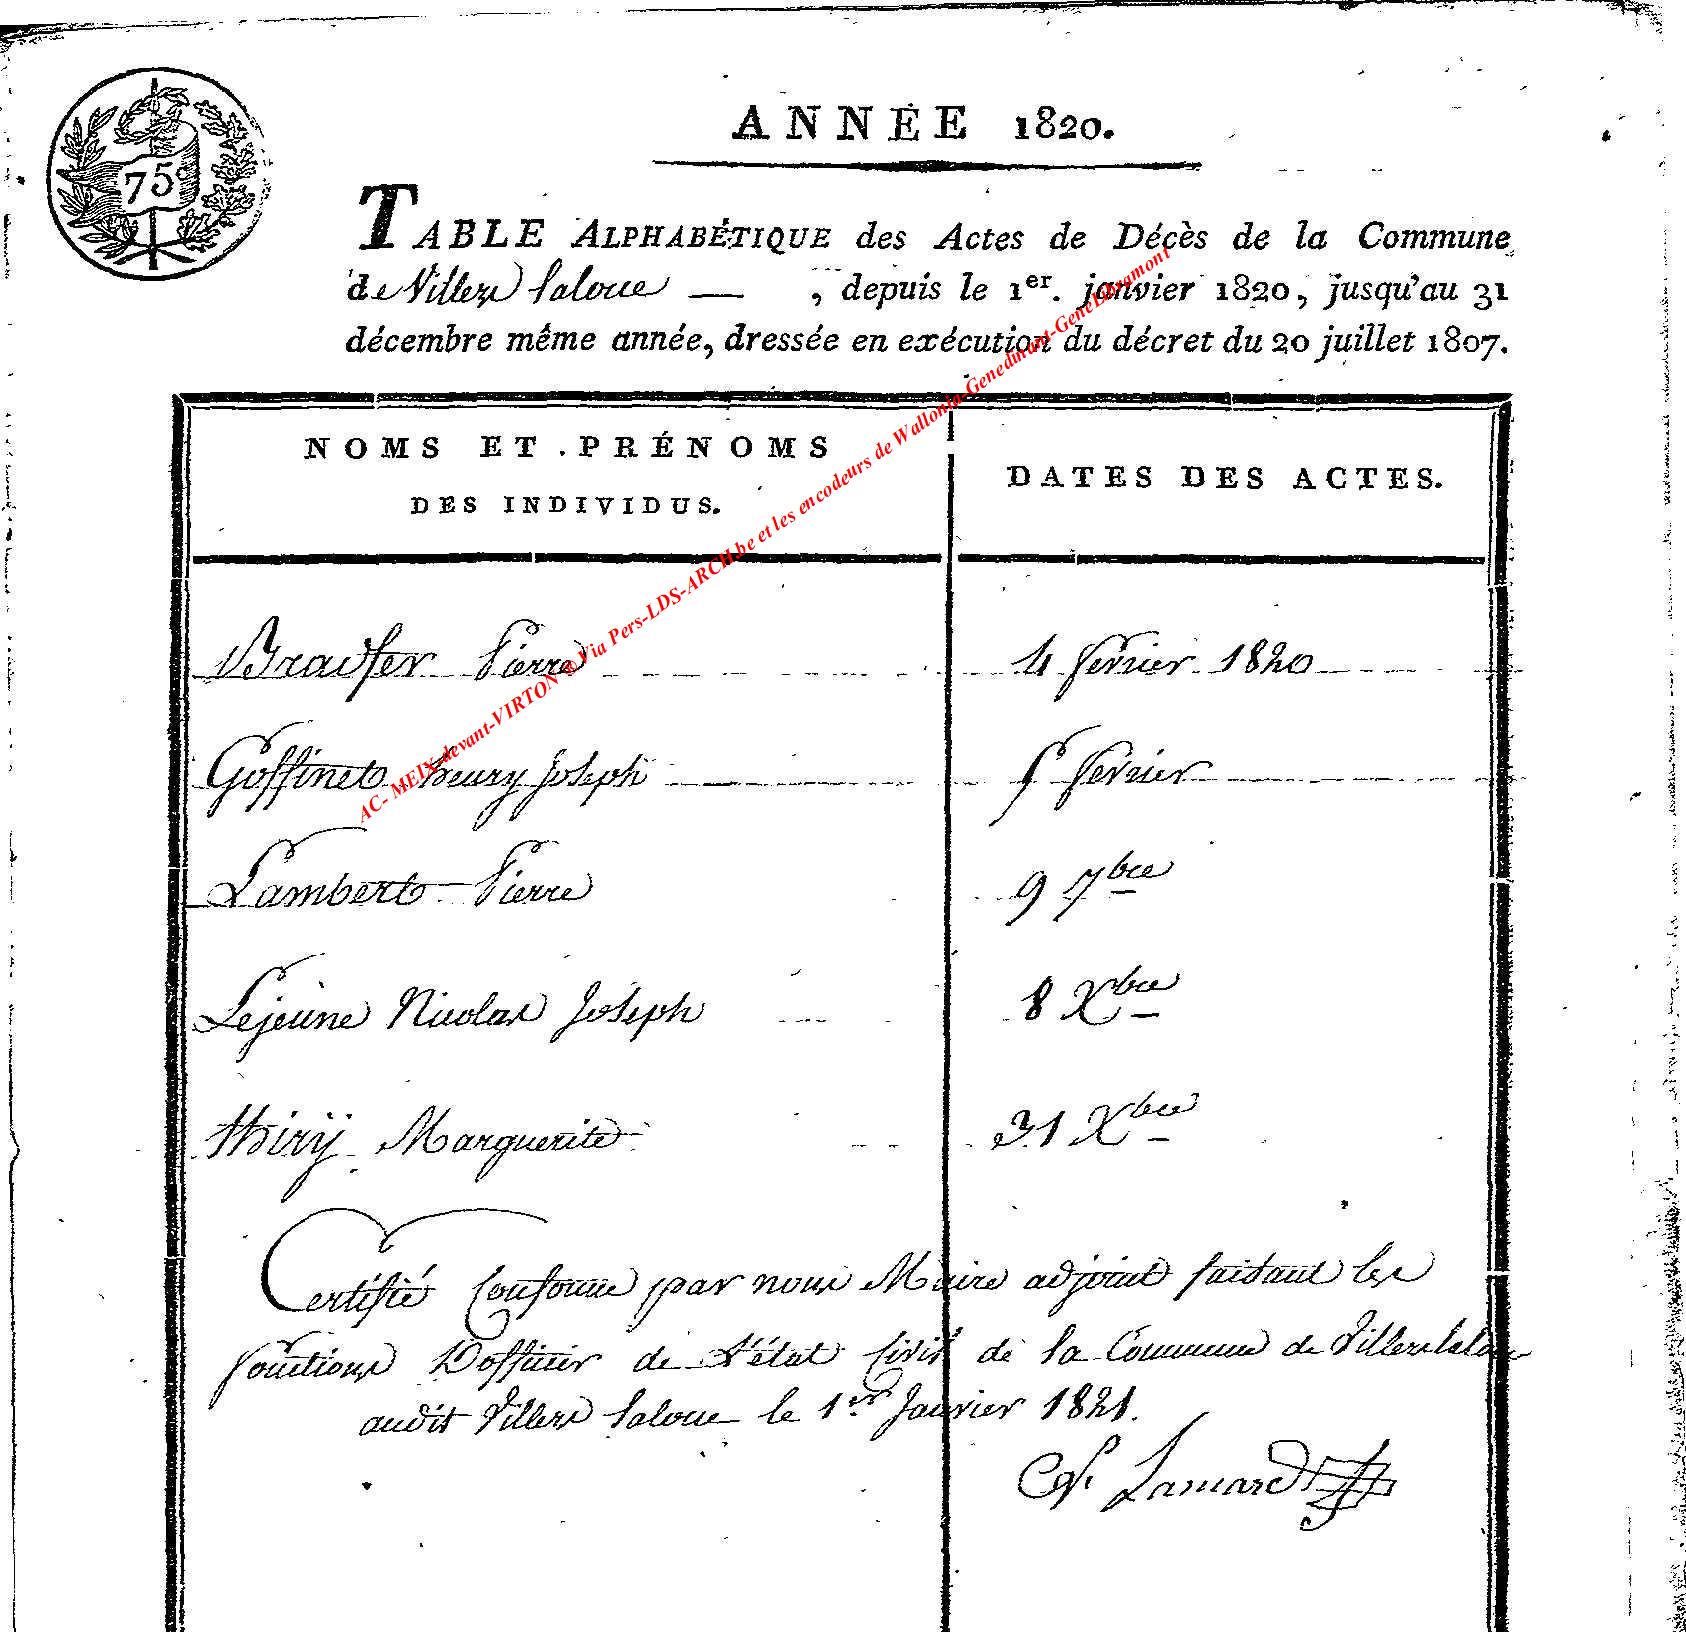 75 c
ANNÉE 1820.
TABLE ALPHABÉTIQUE des Actes de Décès de la Commune
de Villers laloue — , depuis le 1er. janvier 1820, jusqu'au 31
décembre même année, dressée en exécution du décret du 20 juillet 1807.
NOMS ET PRÉNOMS
DES INDIVIDUS.
DATES DES ACTES.
Pierre 4 fevrier 1820
Goffinet henry Joseph 5 fevrier
Lambert Pierre 9 7bre
Lejeune Nicolas Joseph 8 Xbre
thiry Marguerite 31 Xbre
Certifié Conforme par nous Maire adjoint faisant les
fonctions D'officier de L'état Civil de la Commune de Villers laloue
audit Villers laloue le 1er Janvier 1821.
Lamard
AC- MEIX-devant-VIRTON & Via Pers-LDS-ARCH.be et les encodeurs de Wallonia-Genedinant-GeneLibramont